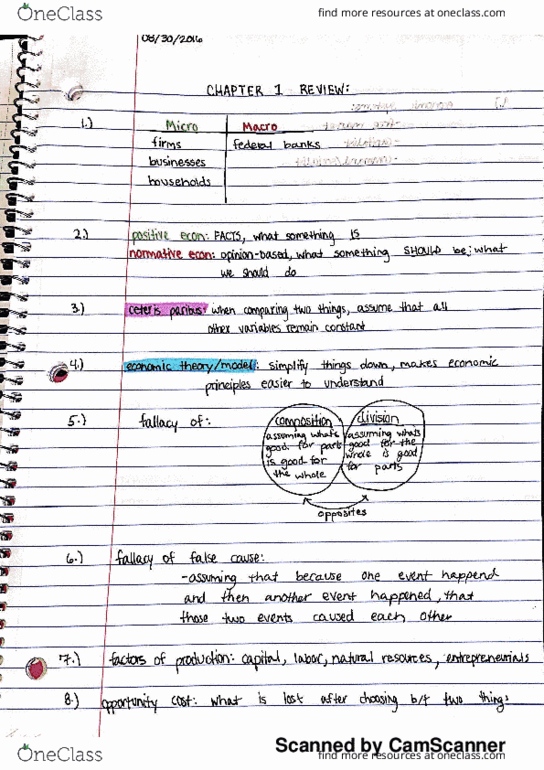 OneClass
find more resources at oneclass.com
08/30/2016
CHAPTER 1 REVIEW:
1.)
Micro Macro
firms federal banks
businesses
households
2.) positive econ: FACTS, what something IS
normative econ: opinion-based, what something SHOULD be; what
we should do
3.) ceteris paribus: when comparing two things, assume that all
other variables remain constant
4.) economic theory/model: simplify things down, makes economic
principles easier to understand
5.) fallacy of: composition division
assuming what's good for part is good for the whole
assuming whats good for the whole is good for parts
opposites
6.) fallacy of false cause:
-assuming that because one event happend
and then another event happened, that
those two events caused each other
7.) factors of production: capital, labor, natural resources, entrepreneurials
8.) opportunity cost: what is lost after choosing b/t two things
Scanned by CamScanner
OneClass
find more resources at oneclass.com